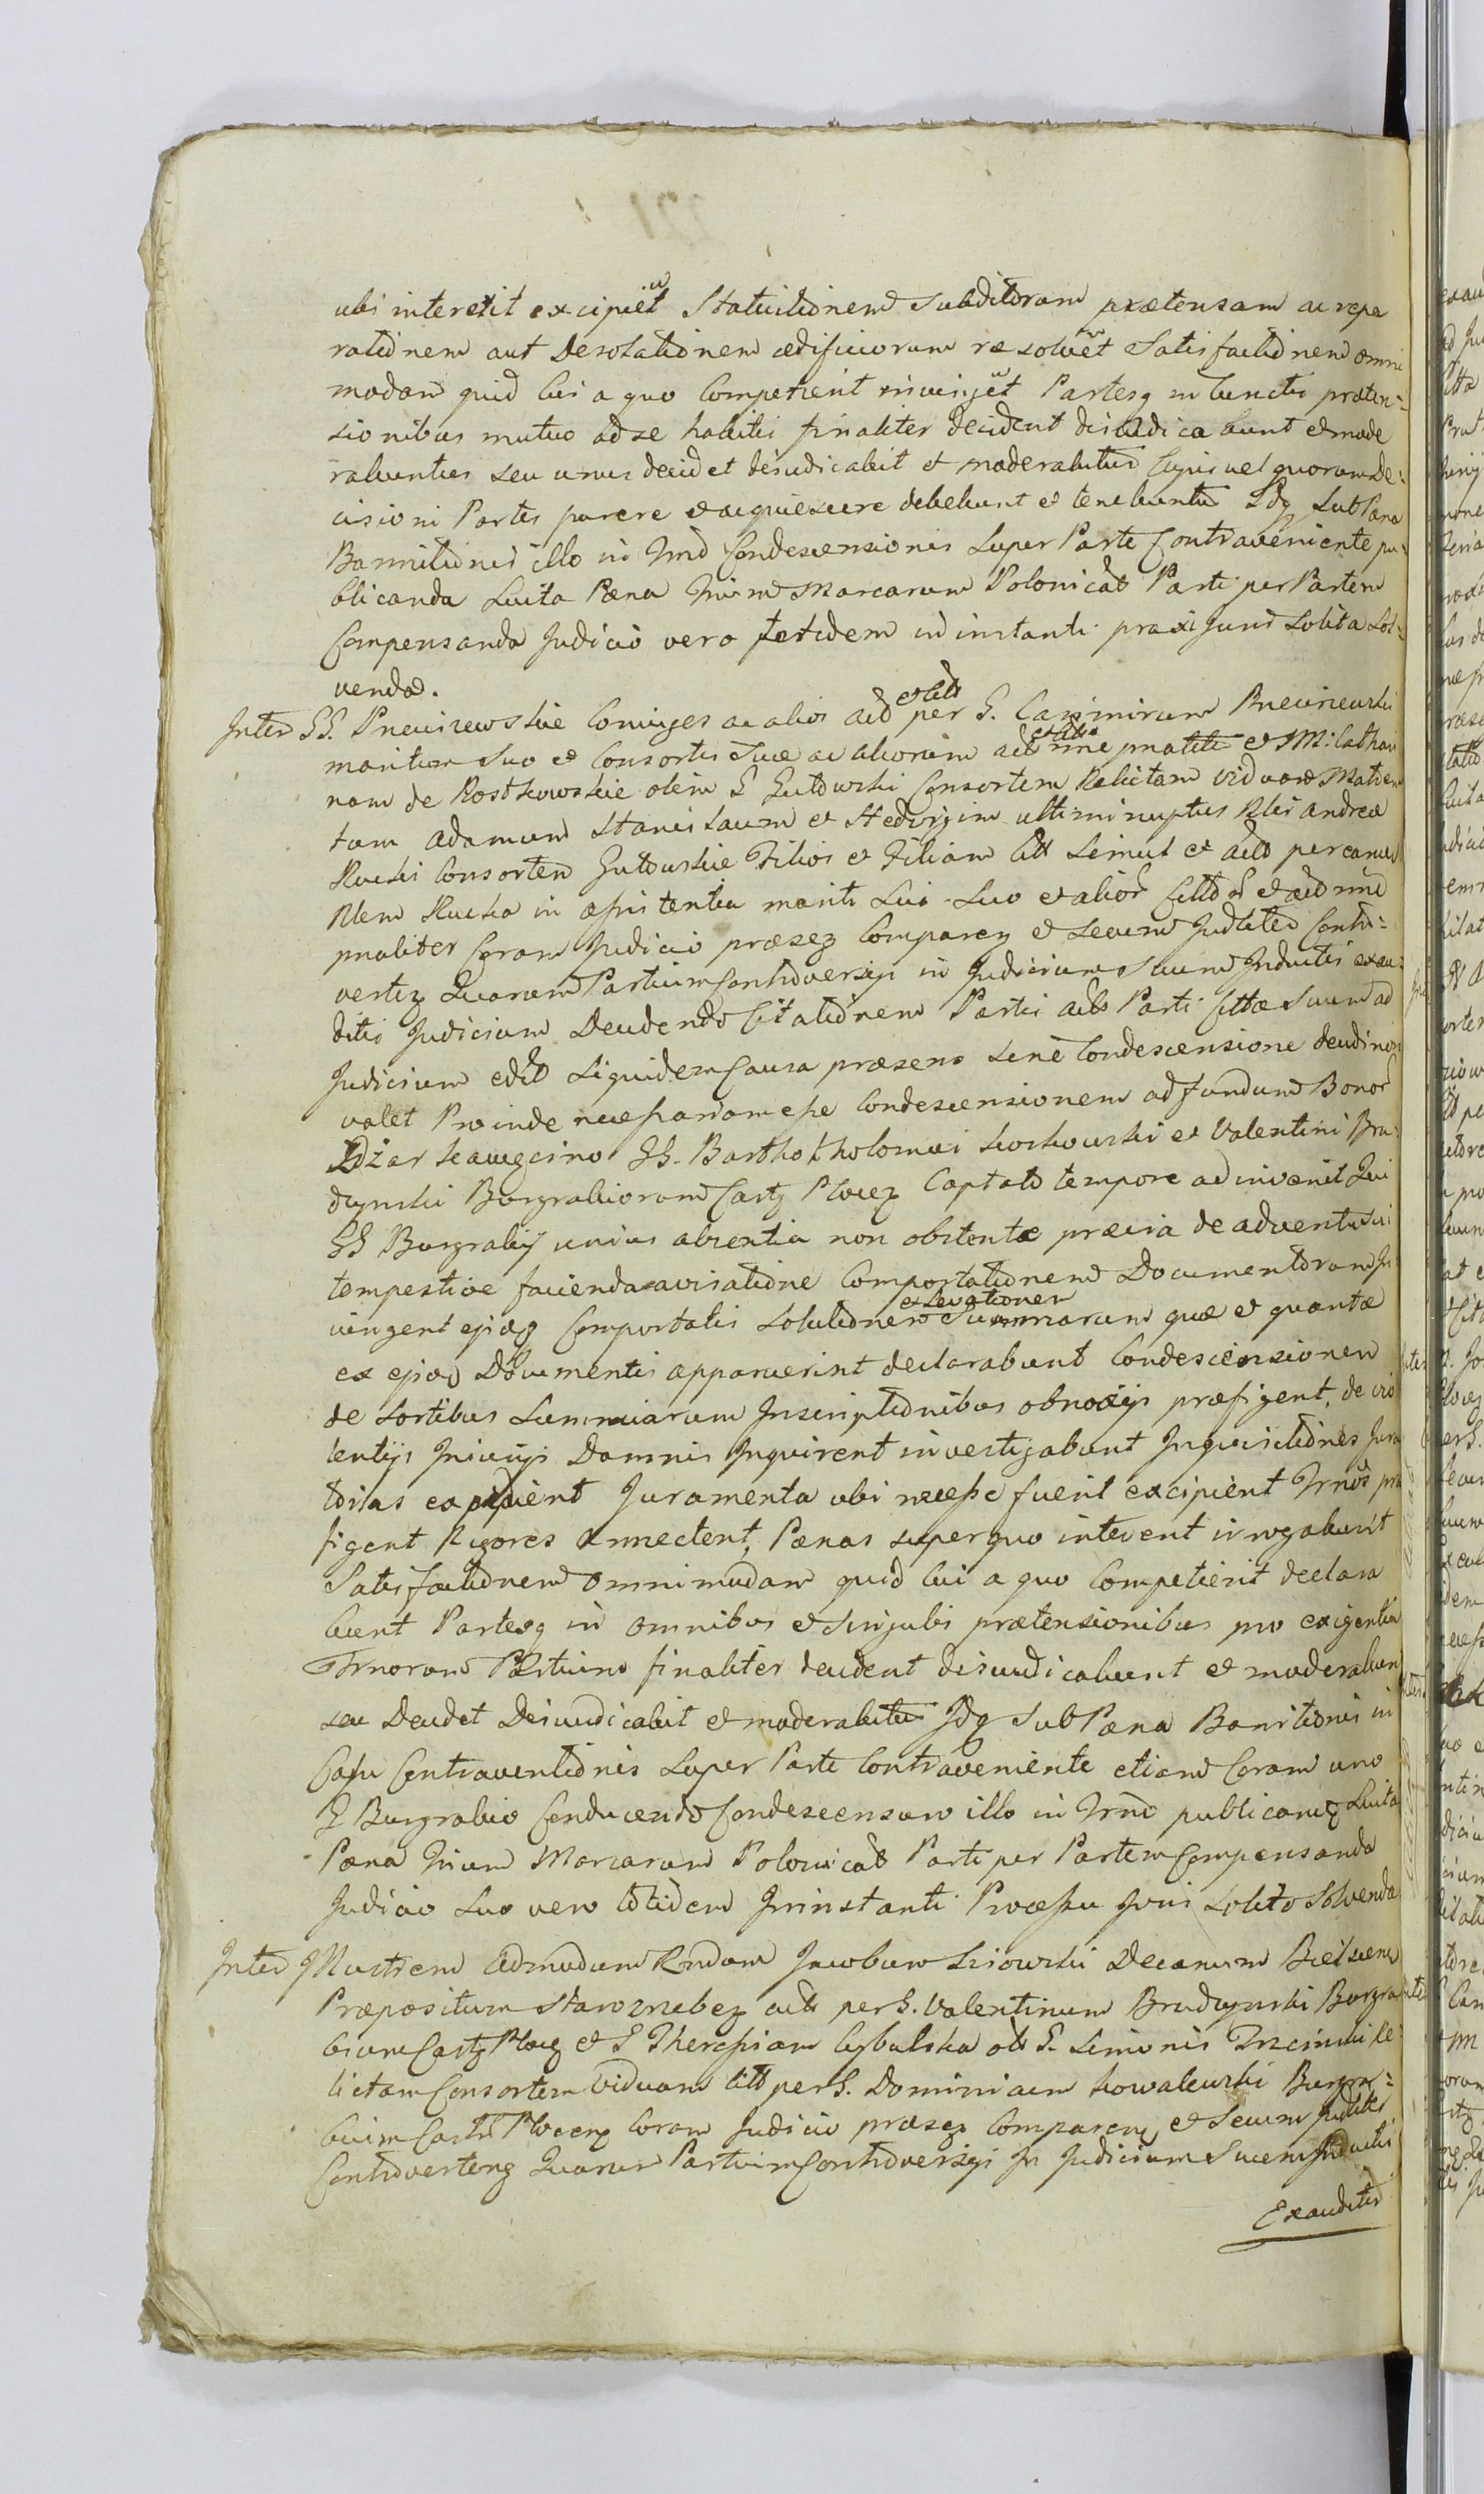 ubi interetit excipiet Statuitionem Subditorum prætensam ac repa
rationem aut Desolationem ædificiorum resolvet Satisfactionem omni
modam quid cui a quo Competient iniunget Partesq in cunctis præten:
sionibus mutuo ad se habitis finaliter decident diiudicabunt et mode
rabuntur seu unus decidet deiudicabit et moderabitur Cujus vel quorum de:
cisioni Partes parere et acquiescere debebunt et tenebuntur Idq sub Pæna
Bannitionis illo in Tmo Condescensionis super Parte Contraveniente pu:
blicanda Luita Pæna Trium Marcarum Polonicab Parti per Partem
Compensanda Judicio vero totidem in instanti praxi Juris Solita Sol:
venda.
Inter GG. Pnewiewskie Coniuges ac alios act et citt per G. Casimirum Pniewiewski
maritum Suo et Consortis Suæ ac aliorum act et citt nne pnaliter et M: Cathari
nam de Rostkowskie olim G Gutowski Consortem Relictam viduam Matrem
tum Adamum Stanislaum et Hedvigim ultimi nuptus Nlis Andreæ
Rucki Consortem Gutowskie Filios et Filiam citt Simul et act per eam
Nlem Rucka in assistentia mariti Sui Suo et alior citt et act nne
pnaliter Coram Judicio præseq Comparen et Secum Judlter Contro:
verten Quarum Partium Controversijs in Judicium Suum Inductis exau:
ditis Judicium Decidendo Citationem Partis act Parti Cittæ Suum ad
Judicium edit Siquidem Causa præsens sine Condescensione decidi non
valet Proinde necessariam esse Condescensionem ad fundum Bonor
Idzarkawęcino GG. Barthotholomæi Koskowski et Valentini Bru:
dzynski Burgrabiorum Castr Plocen Captato tempore adinvenit Qui
GG Burgrabij unius absentia non obstente prævia de adventu Sui
tempestive facienda avisatione Comportationem Documentorum In
iungent ejsq Comportatis Solutionem et Levationem Summarum quæ et quantæ
ex ejsq Documentis apparuerint declarabunt Condescensionem
de Sortibus Summarum Inscriptionibus obnoxijs præfigent, de vio
lentijs Iniurijs Damnis Inquirent investigabunt Inquisitiones Jura
torias expedient Juramenta ubi necesse fuerit excipient Trnos præ
figent Rigores Annectent, Pænas super quo intererit irrogabunt
Satisfactionem omnimodam quid cui a quo Competierit declara
bunt Partesq in omnibus et Singulis prætensionibus pro exigentia
Trnorum Partium finaliter decident deiudicabunt et moderabun
seu Decidet Deiudicabit et moderabitur Idq Sub Pæna Banitionis in
Casu Contraventionis super Parte Contraveniente etiam Coram uno
G Burgrabio Conducendo Condescensum illo in Trno publicanq Luita
Pæna Trium Marcarum Polonicab Parti per Partem Compensanda
Judicio Suo vero totidem Ininstanti Processu Juris Solito Solvenda
Inter Illustrem Admodum Rndum Jacobum Lisowski Decanum Bielscem
Præpositum Starozrebez act per G. Valentinum Brudzynski Burgra
bium Castr Plocen et G Theressiam Cybulska olt G. Simonis Trzcinski Re
lictam Consortem Viduam citt per G. Dominicum Kowalewski Burgra:
bium Castr Plocen Coram Judicio præseq Comparen et Secum Judlter
Controverteng Quarum Partium Controversijs In Judicium Suum Inductis
Exauditis